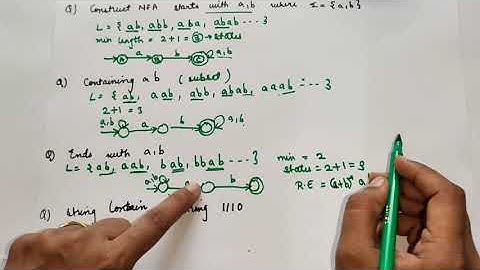 Q) Construct NFA starts with a,b where Σ = {a,b}
L = { ab, abb, aba, abab ... }
min length = 2+1 = 3 → states
A a B b C a,b
Q) Containing ab (subset)
L = { ab, aab, abb, abab, aaab ... }
2+1 = 3
a,b a b a,b
Q) Ends with a,b
L = { ab, aab, bab, bbab ... }
min = 2
states = 2+1 = 3
R.E = (a+b)* a
a,b a b
Q) string contain 1110